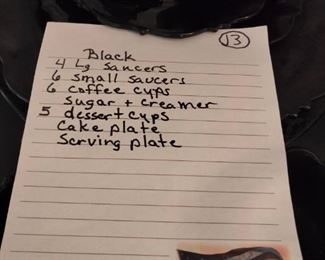 13
Black
4 Lg Saucers
6 small saucers
6 coffee cups
Sugar + creamer
5 dessert cups
Cake plate
Serving plate